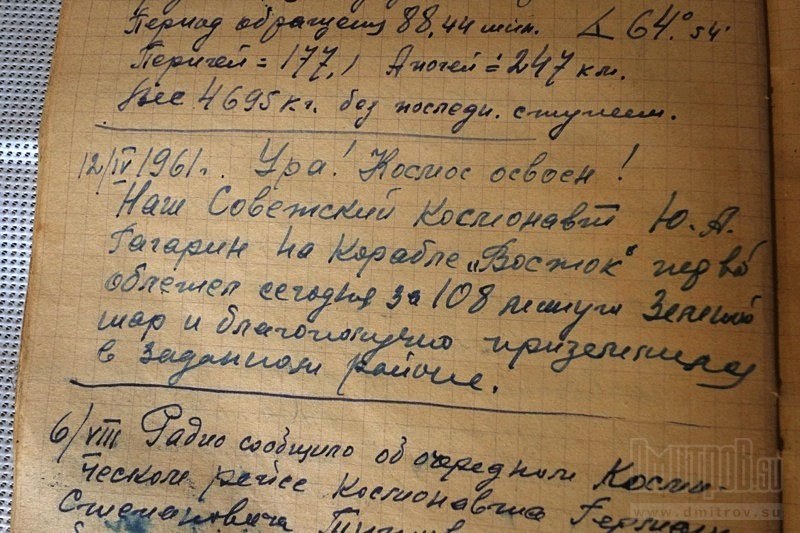 Период обращения 88,44 мин. ∠ 64.° 54'
Перигей = 177,1 Апогей = 247 км.
Вес 4695 кг. без последн. ступени.
12/IV 1961г. Ура! Космос освоен!
Наш Советский Космонавт Ю. А.
Гагарин на Корабле „Восток"
облетел сегодня за 108 минут Земной
шар и благополучно приземлился
в заданном районе.
6/VIII Радио сообщило об очередном Косми-
ческом рейсе Космонавта Герман
Степановича Титов
DMITROV.su
www.dmitrov.su